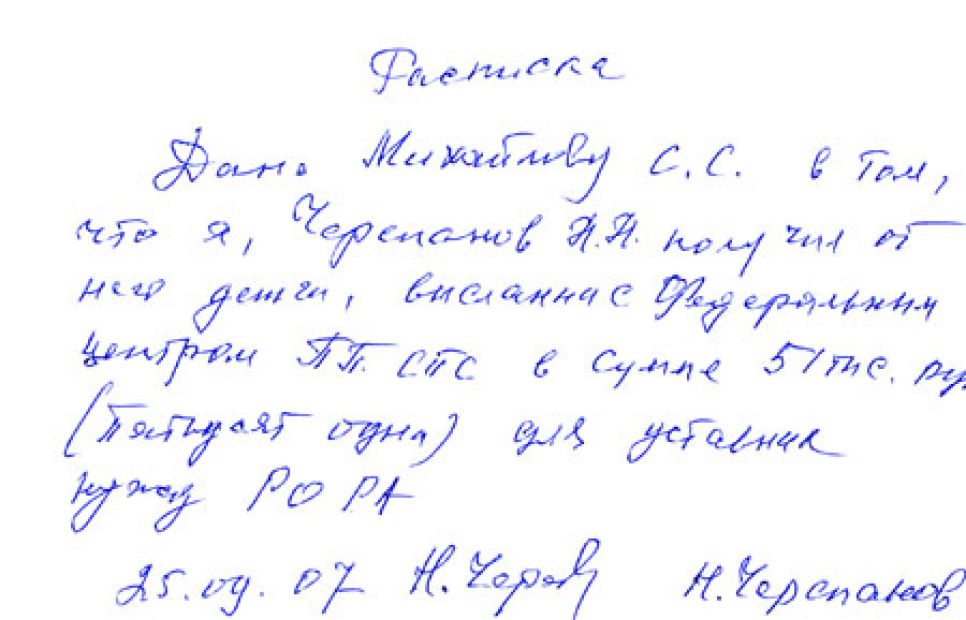 Расписка
Дана Михайлову С.С. в том,
что я, Черепанов Н.Н. получил от
него деньги, высланные Федеральным
центром ПП. СПС в сумме 51 тыс. ру
(Пятьдесят одна) для уставных
нужд РО РА
25.04.07 Н. Черепанов